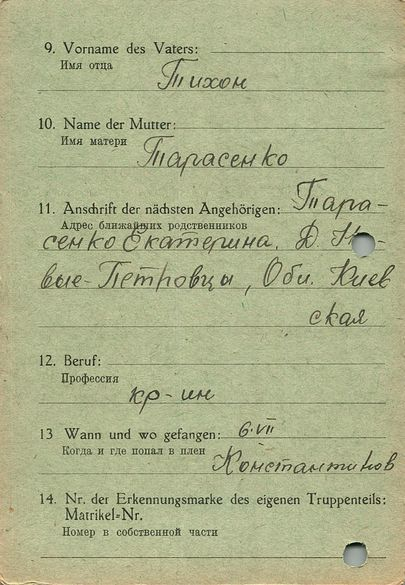 9. Vorname des Vaters:
Имя отца
Тихон
10. Name der Mutter:
Имя матери
Тарасенко
11. Anschrift der nächsten Angehörigen: Тара-
Адрес ближайших родственников
сенко Екатерина, Д. Но-
вые-Петровцы, Обл. Киев
ская
12. Beruf:
Профессия
кр-ин
13 Wann und wo gefangen: 6·VII
Когда и где попал в плен
Константинов
14. Nr. der Erkennungsmarke des eigenen Truppenteils:
Matrikel-Nr.
Номер в собственной части